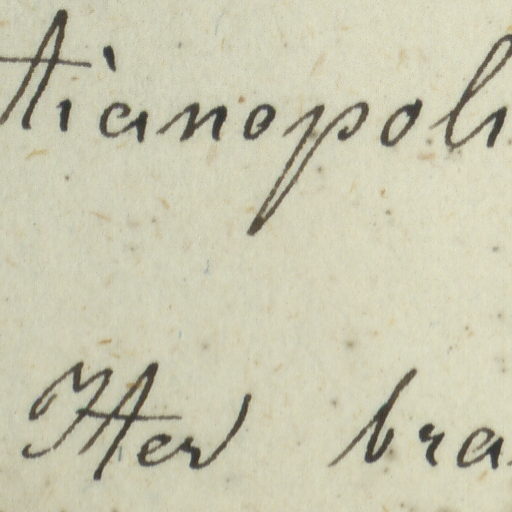 tianopoli
Iter bra